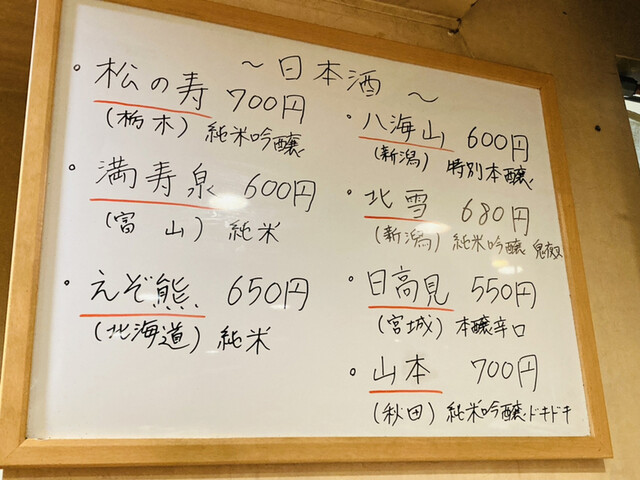 ～日本酒～
・松の寿 700円
(栃木) 純米吟醸
・満寿泉 600円
(富山) 純米
・えぞ熊 650円
(北海道) 純米
・八海山 600円
(新潟) 特別本醸
・北雪 680円
(新潟) 純米吟醸
・日高見 550円
(宮城) 本醸辛口
・山本 700円
(秋田) 純米吟醸・ドキドキ